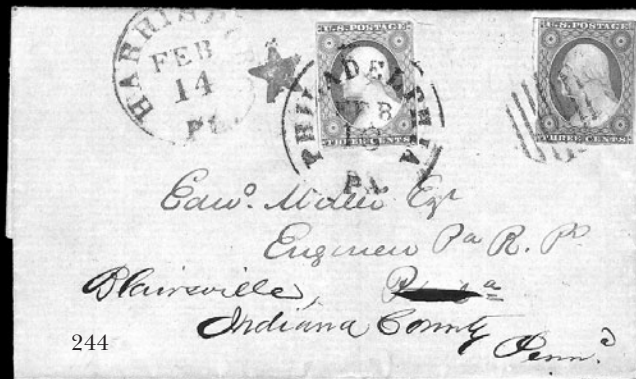 HARRISBURG
FEB
14
Pa.
U.S. POSTAGE
THREE CENTS
PHILADELPHIA
FEB
PA
U.S. POSTAGE
THREE CENTS
Edwd. Miller Esqr
Engineer Pa R. Rd
Blairsville,
Indiana County
Penna
244